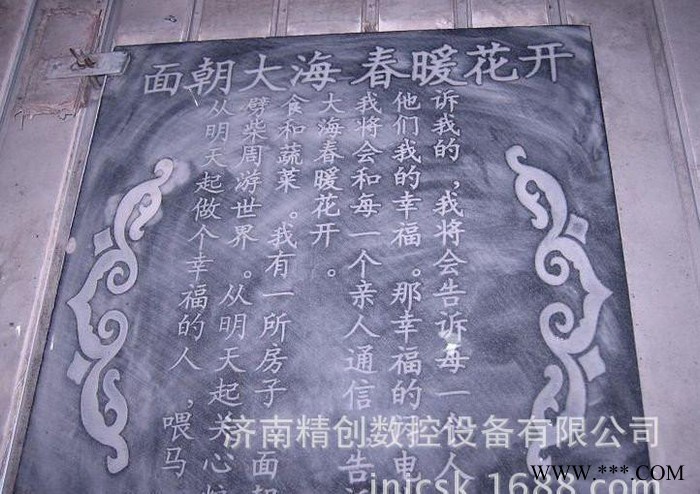 面朝大海 春暖花开
从明天起做个幸福的人，喂马
劈柴周游世界。从明天起关心
食和蔬菜。我有一所房子面朝
大海春暖花开。
我将会和每一个亲人通信告
他们我的幸福。那幸福的电
诉我的，我将会告诉每一人
济南精创数控设备有限公司
jnjcsk.1688.com
WWW.***.COM